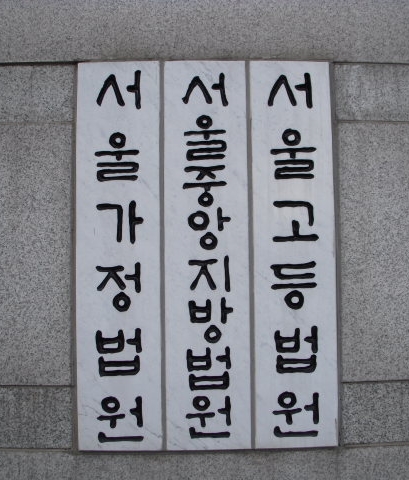 서울고등법원
서울중앙지방법원
서울가정법원